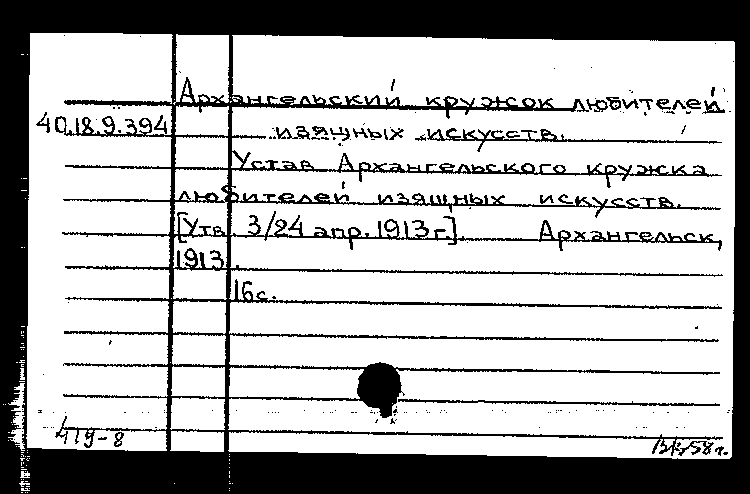 Архангельский кружок любителей
40.18.9.394 изящных искусств.
Устав Архангельского кружка
любителей изящных искусств.
[Утв. 3/24 апр. 1913 г.]. Архангельск,
1913.
16 с.
419-8